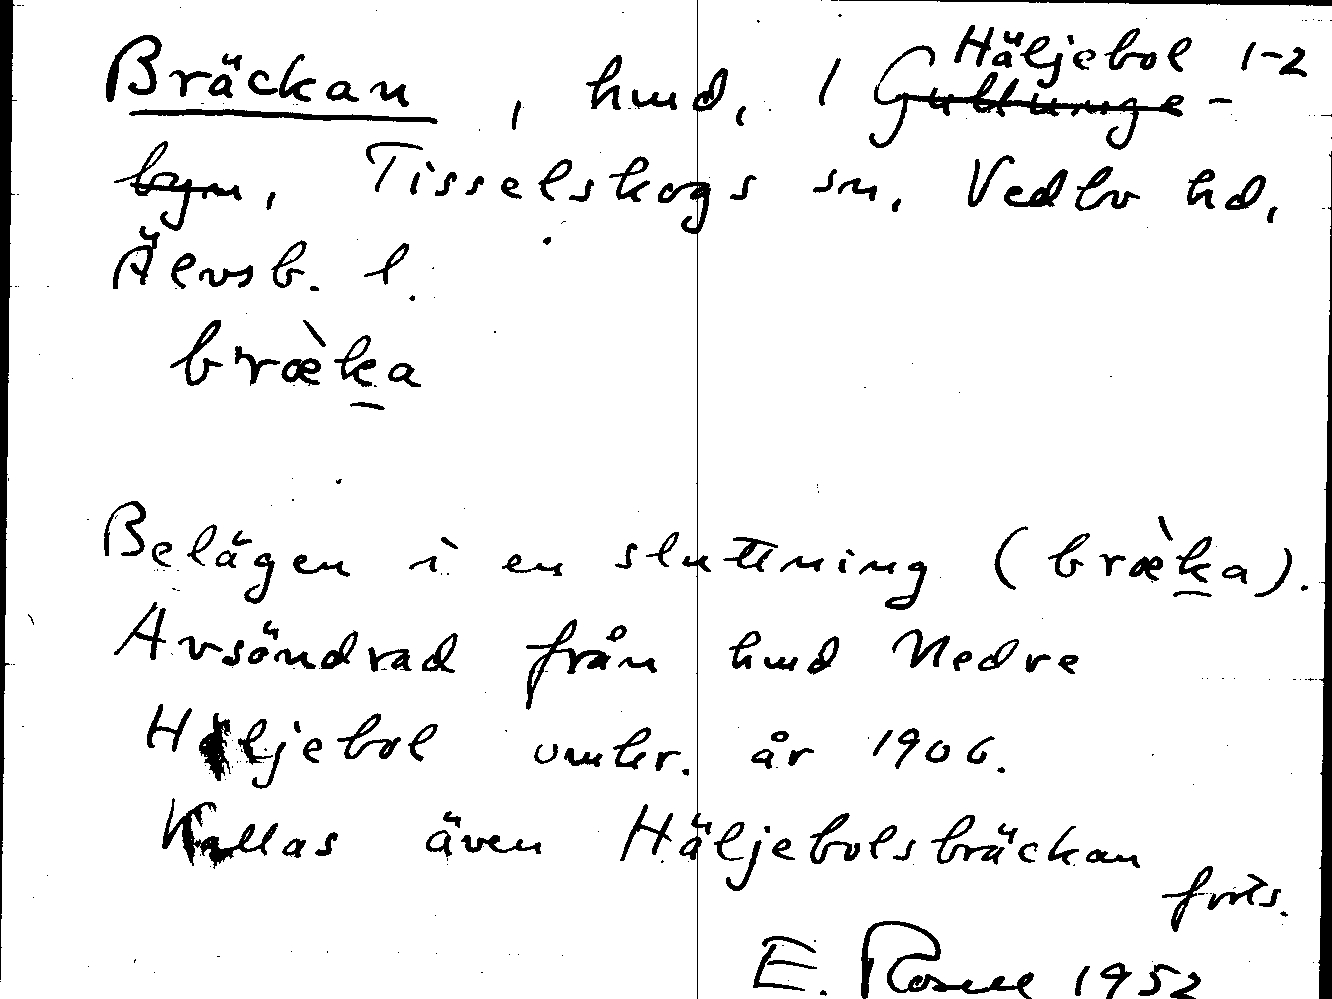 Häljebol 1-2
Bräckan, hmd, 1 Gullunge-
byn, Tisselskogs sn, Vedbo hd,
Älvsb. l.
bræ̀ka
Belägen i en sluttning (bræ̀ka).
Avsöndrad från hmd Nedre
Häljebol omkr. år 1906.
Kallas även Häljebolsbräckan
forts.
E. Rosell 1952